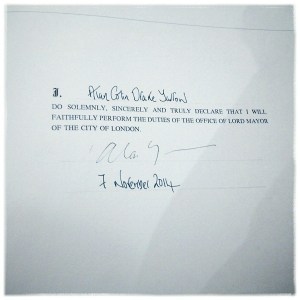 I, Alan Colin Drake Yarrow
DO SOLEMNLY, SINCERELY AND TRULY DECLARE THAT I WILL
FAITHFULLY PERFORM THE DUTIES OF THE OFFICE OF LORD MAYOR
OF THE CITY OF LONDON.
7 November 2014